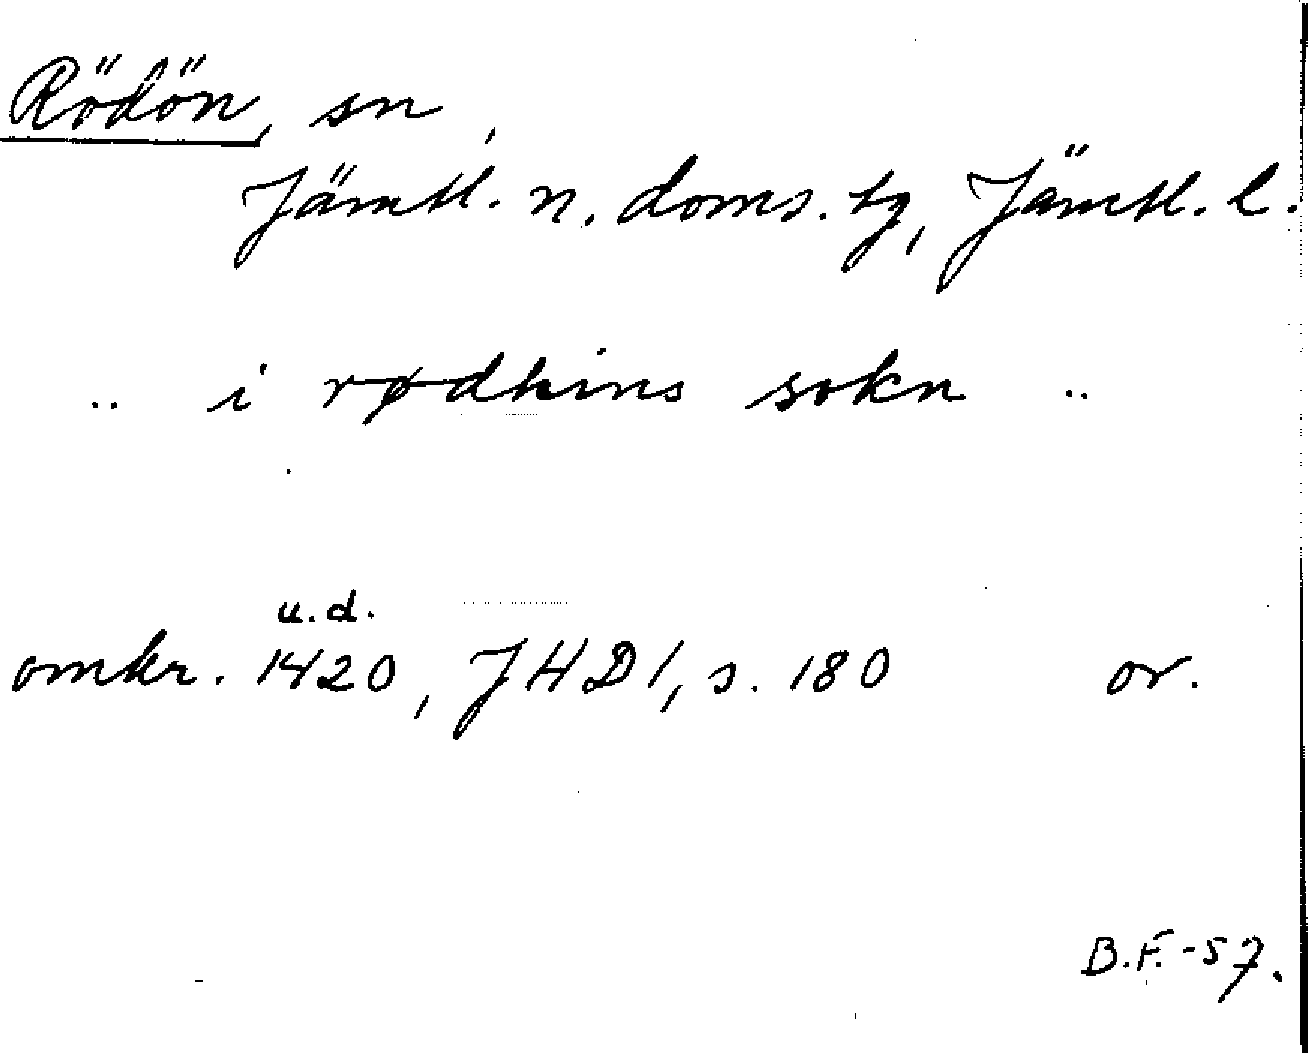 Rödön, sn,
Jämtl. n. doms. tg, Jämtl. l.
.. i rødhins sokn ..
u.d.
omkr. 1420, JHD 1, s. 180 or.
B.F. -57.